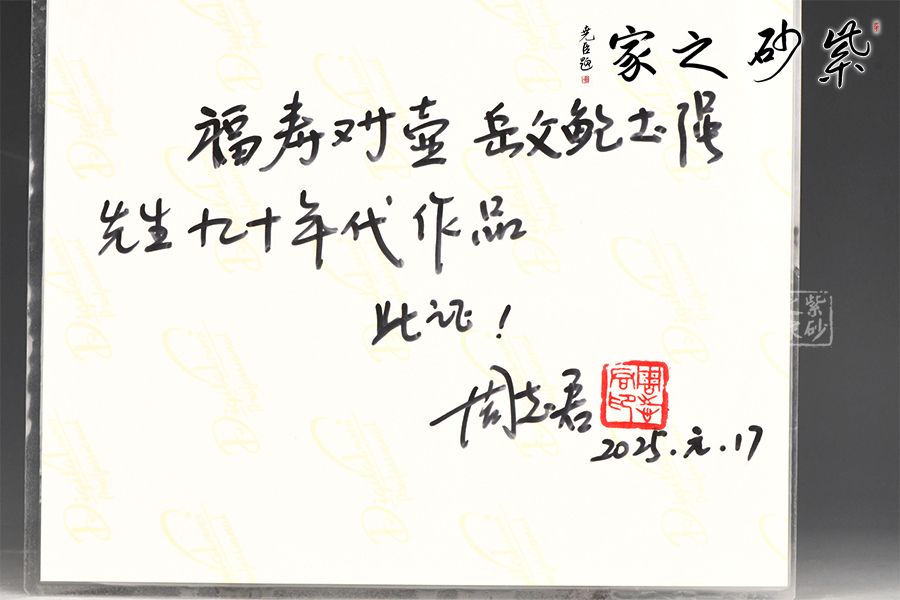 紫砂之家
尧臣题
福寿对壶 岳父鲍志强
先生九十年代作品
此证！
周志君
2025.元.17
紫砂